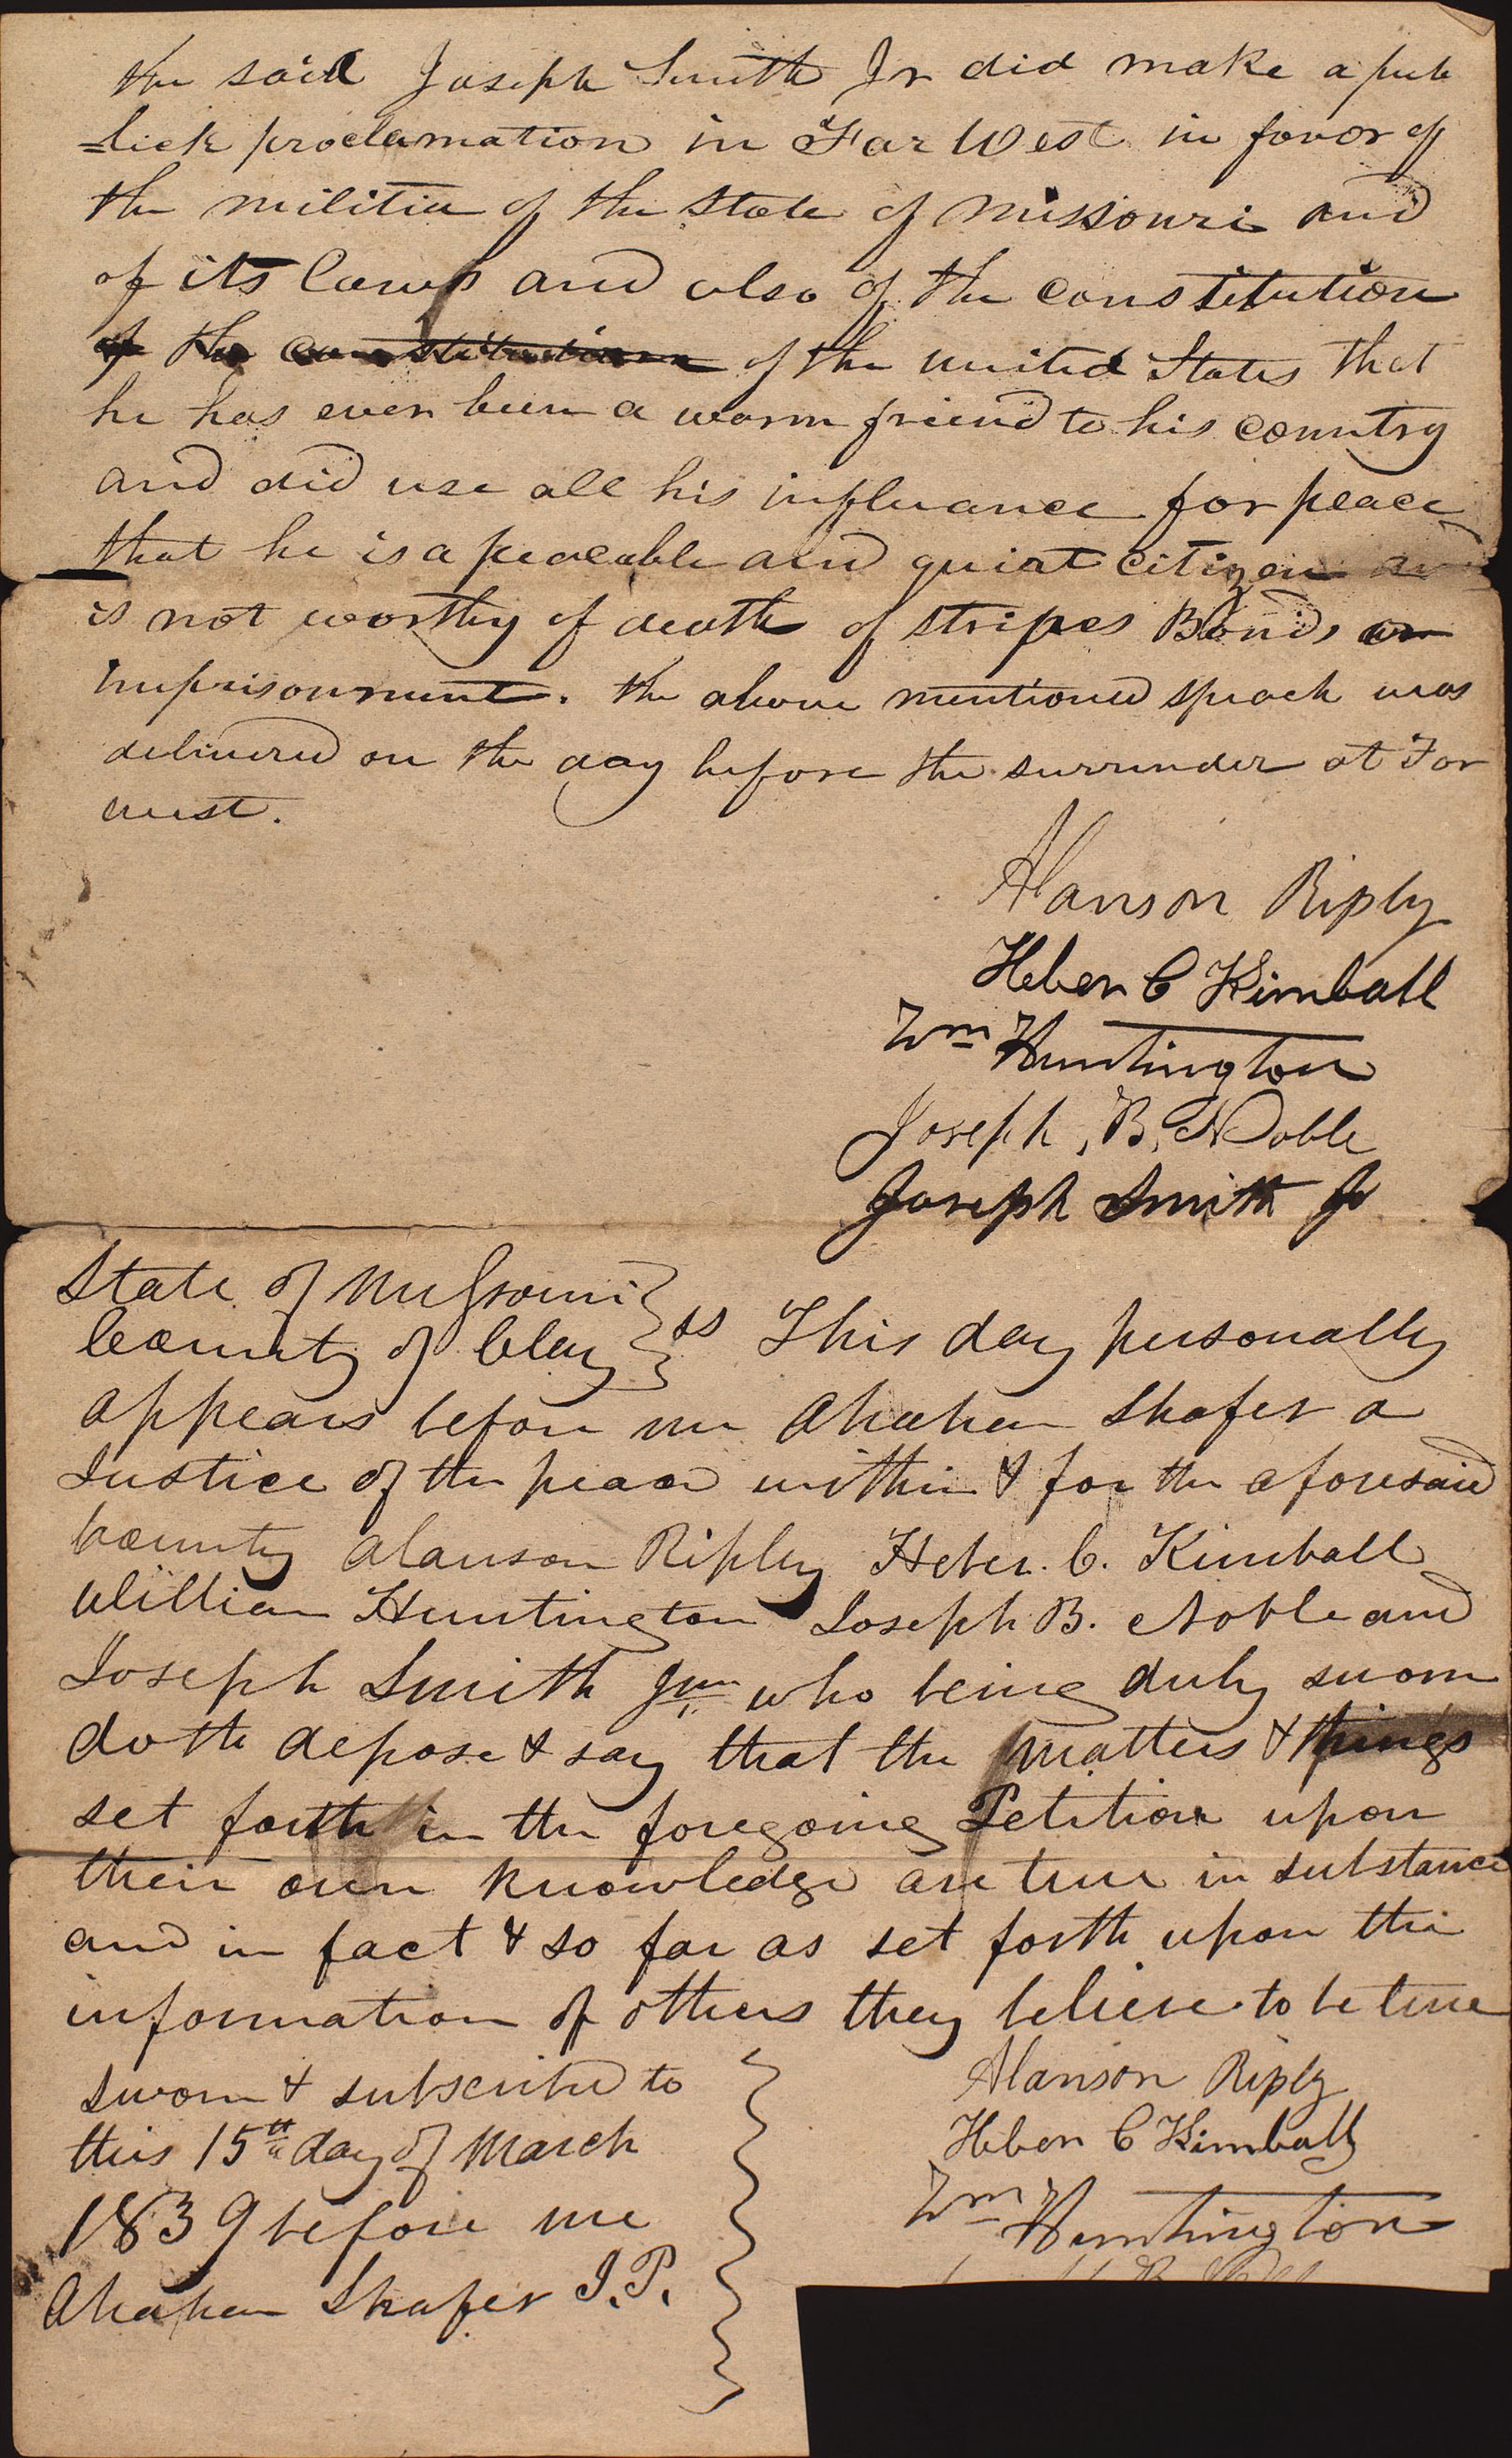 the said Joseph Smith Jr did make a pub
=lick proclamation in Far West in favor of
the militia of the State of Missouri and
of its Laws and also of the constitution
of the constitution of the united States that
he has ever been a warm friend to his country
and did use all his influance for peace
that he is a peaceable and quiat citizen and
is not worthy of death of stripes Bonds or
imprisonment. the above mentioned speach was
delivered on the day before the surrender at Far
west.
Alanson Riply
Heber C Kimball
Wm Huntington
Joseph, B, Noble
Joseph Smith Jr
State of Missouri
County of Clay ss This day personally
appears before me Abraham Shafer a
Justice of the peace within & for the aforesaid
County Alanson Ripley Heber. C. Kimball
William Huntington Joseph B. Noble and
Joseph Smith Junr who being duly sworn
doth depose & say that the matters & things
set forth in the foregoing Petition upon
their own knowledge are true in substance
and in fact & so far as set forth upon the
information of others they believe to be true
Sworn & subscribed to
this 15th day of March
1839 before me
Abraham Shafer J.P.
Alanson Riply
Heber C Kimball
Wm Huntington